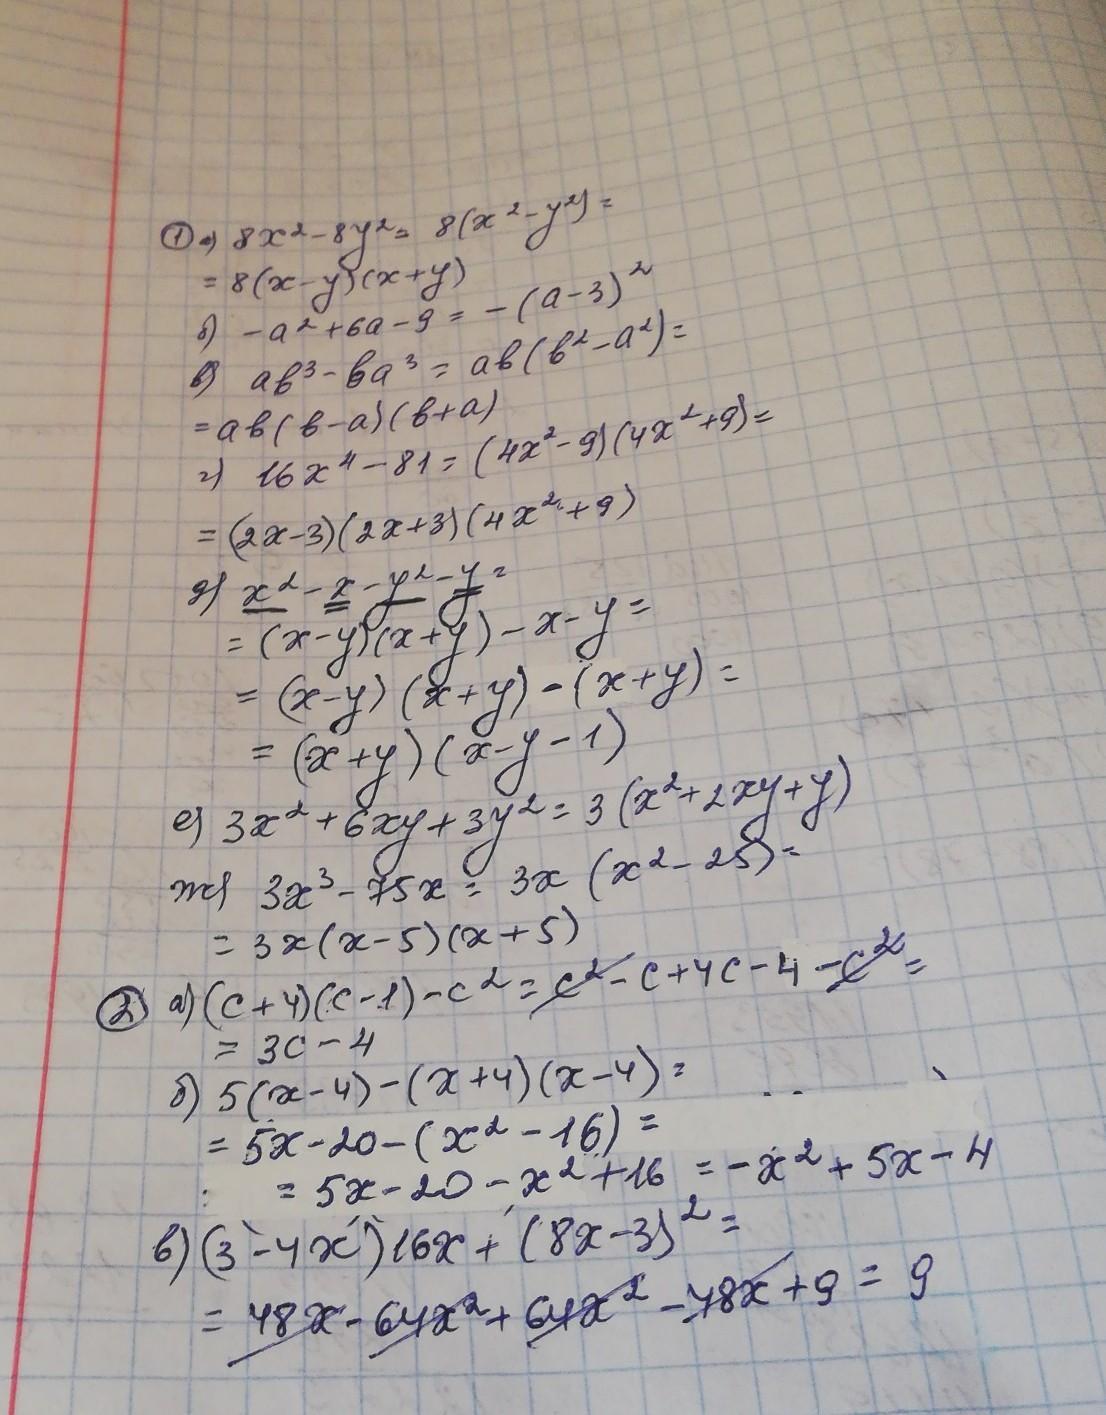 ① а) 8x² - 8y² = 8(x² - y²) =
= 8(x - y)(x + y)
б) -a² + 6a - 9 = -(a - 3)²
в) ab³ - ba³ = ab(b² - a²) =
= ab(b - a)(b + a)
г) 16x⁴ - 81 = (4x² - 9)(4x² + 9) =
= (2x - 3)(2x + 3)(4x² + 9)
д) x² - x - y² - y =
= (x - y)(x + y) - x - y =
= (x - y)(x + y) - (x + y) =
= (x + y)(x - y - 1)
е) 3x² + 6xy + 3y² = 3(x² + 2xy + y)
ж) 3x³ - 75x = 3x(x² - 25) =
= 3x(x - 5)(x + 5)
② а) (c + 4)(c - 1) - c² = c² - c + 4c - 4 - c² =
= 3c - 4
б) 5(x - 4) - (x + 4)(x - 4) =
= 5x - 20 - (x² - 16) =
= 5x - 20 - x² + 16 = -x² + 5x - 4
в) (3 - 4x)16x + (8x - 3)² =
= 48x - 64x² + 64x² - 48x + 9 = 9